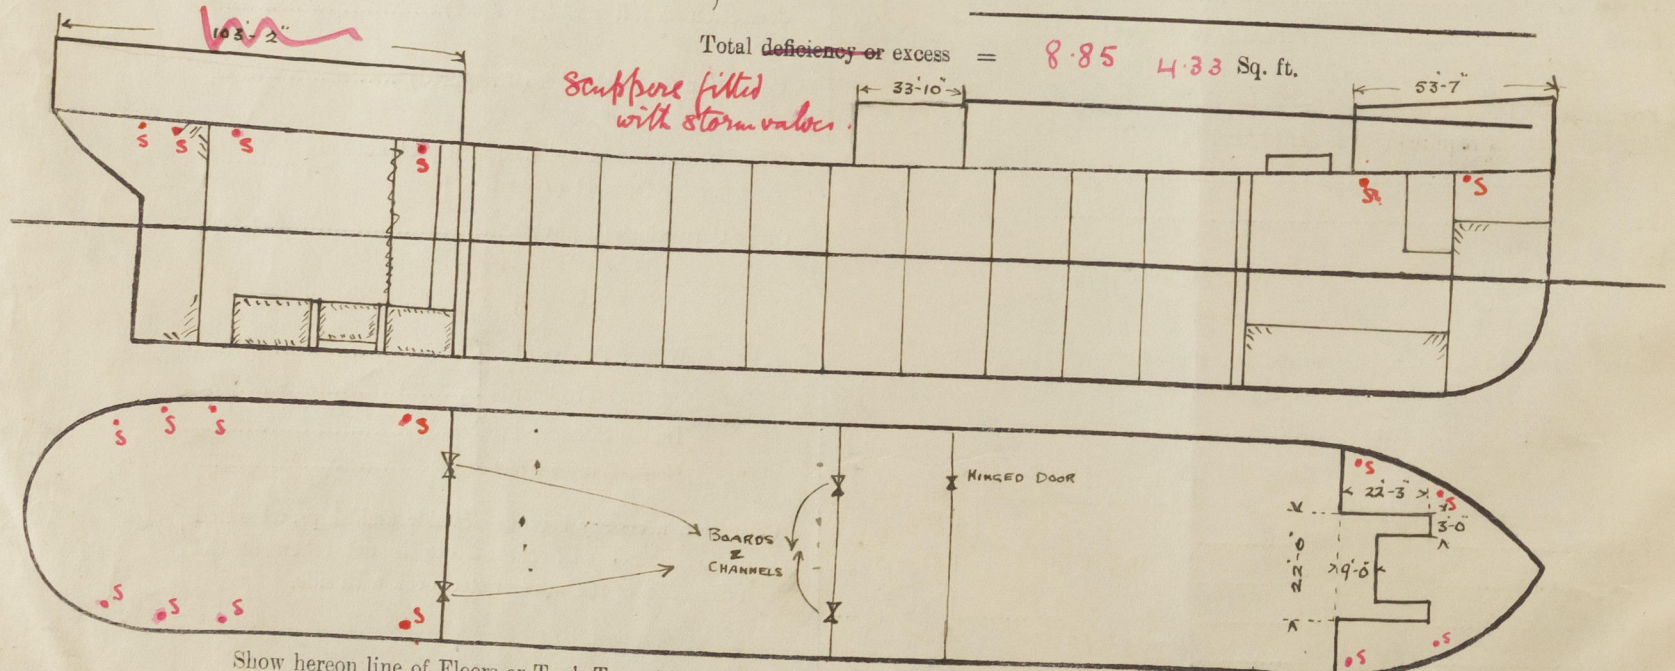 103'-2"
Total deficiency or excess = 8.85 4.33 Sq. ft.
Scuppers fitted
with storm valves.
33'-10"
53'-7"
S S S S S S
S S S S
HINGED DOOR
S
22'-3"
S
3'-0"
BOARDS
&
CHANNELS
22'-0"
9'-0"
S S S S
S S
Show hereon line of Floors or Tank